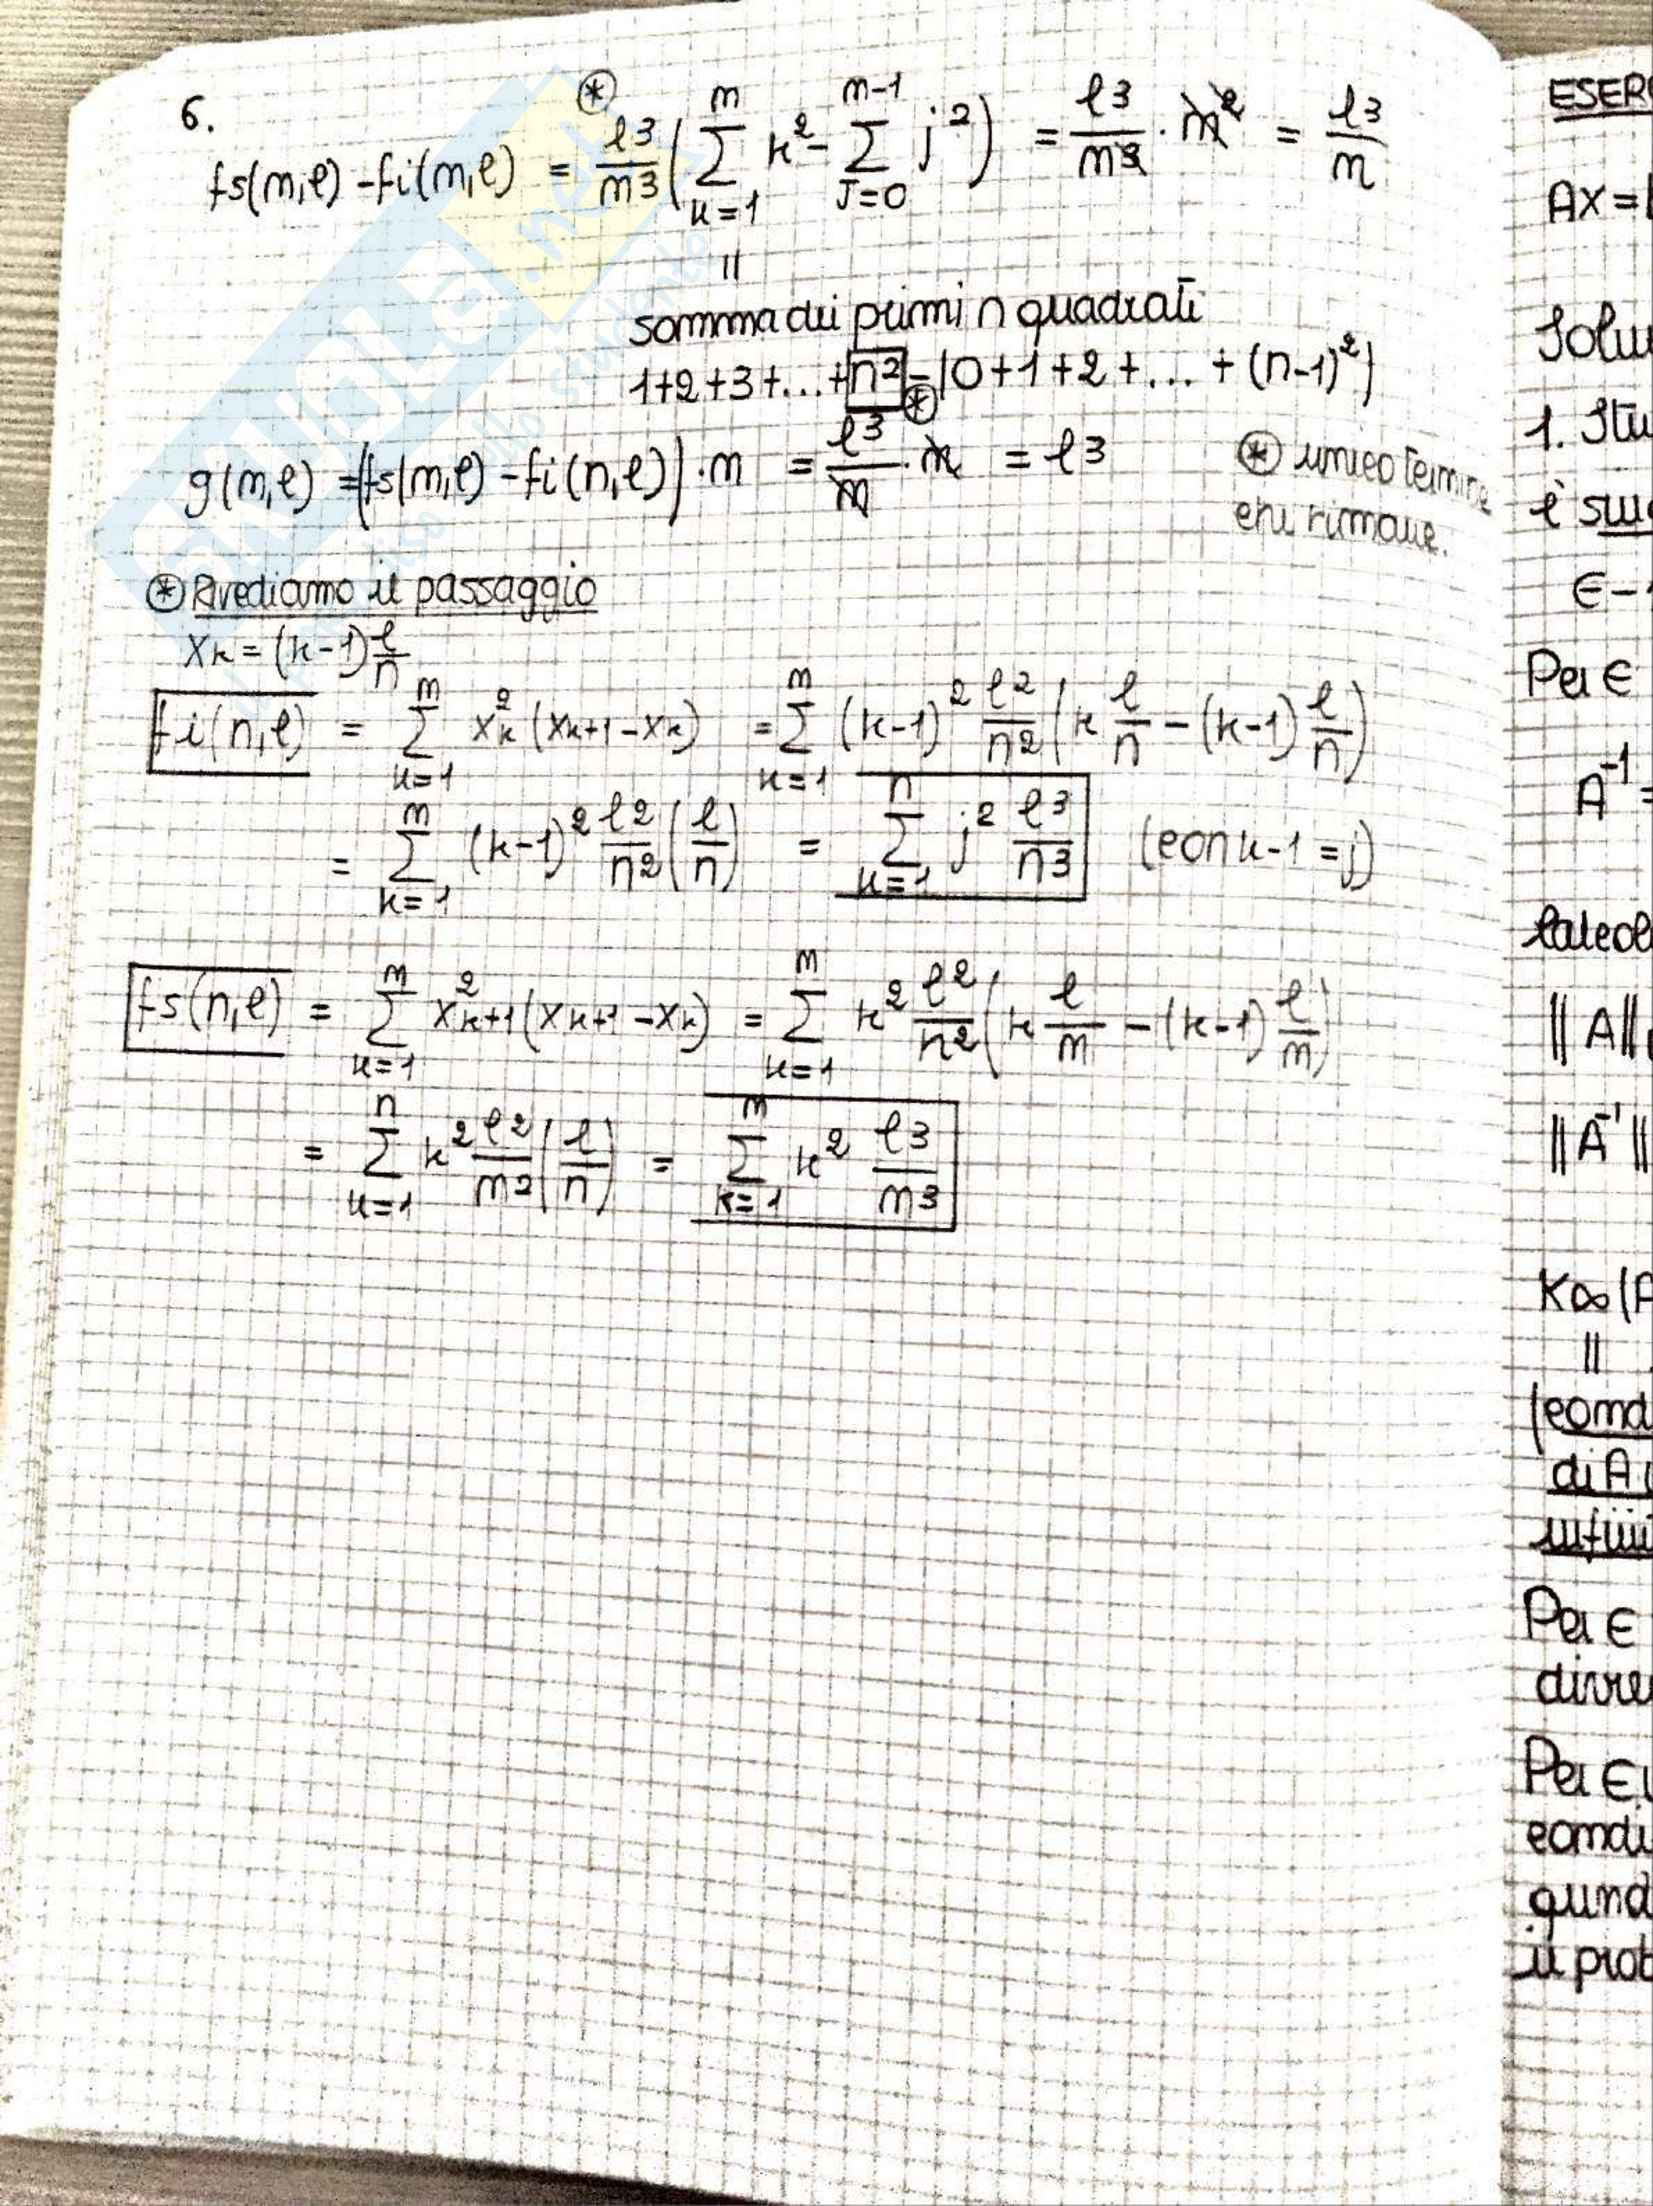 6.
fs(n,l) - fi(n,l) = ⊛ l³/n³ ( Σ_{k=1}^{n} k² - Σ_{J=0}^{n-1} j² ) = l³/n³ · n² = l³/n
=
somma dei primi n quadrati
1+2+3+...+ n² - (0+1+2+...+(n-1)²)
g(n,l) = (fs(n,l) - fi(n,l)) · n = l³/n · n = l³
⊛ unico termine
che rimane.
⊛ Rivediamo il passaggio
Xk = (k-1) l/n
fi(n,l) = Σ_{k=1}^{n} Xk² (Xk+1 - Xk) = Σ_{k=1}^{n} (k-1)² l²/n² (k l/n - (k-1) l/n)
= Σ_{k=1}^{n} (k-1)² l²/n² (l/n) = Σ_{k=1}^{n} j² l³/n³ (con k-1 = j)
fs(n,l) = Σ_{k=1}^{n} X²k+1 (Xk+1 - Xk) = Σ_{k=1}^{n} k² l²/n² (k l/n - (k-1) l/n)
= Σ_{k=1}^{n} k² l²/n² (l/n) = Σ_{k=1}^{n} k² l³/n³
ESER
AX=
Solu
1. Stu
è
ϵ-1
Per ϵ
A⁻¹ =
Calcol
||A||
||A⁻¹||
K∞(A
=
(cond
di A
infini
Per ϵ
diver
Per ϵ
condi
quind
il prob